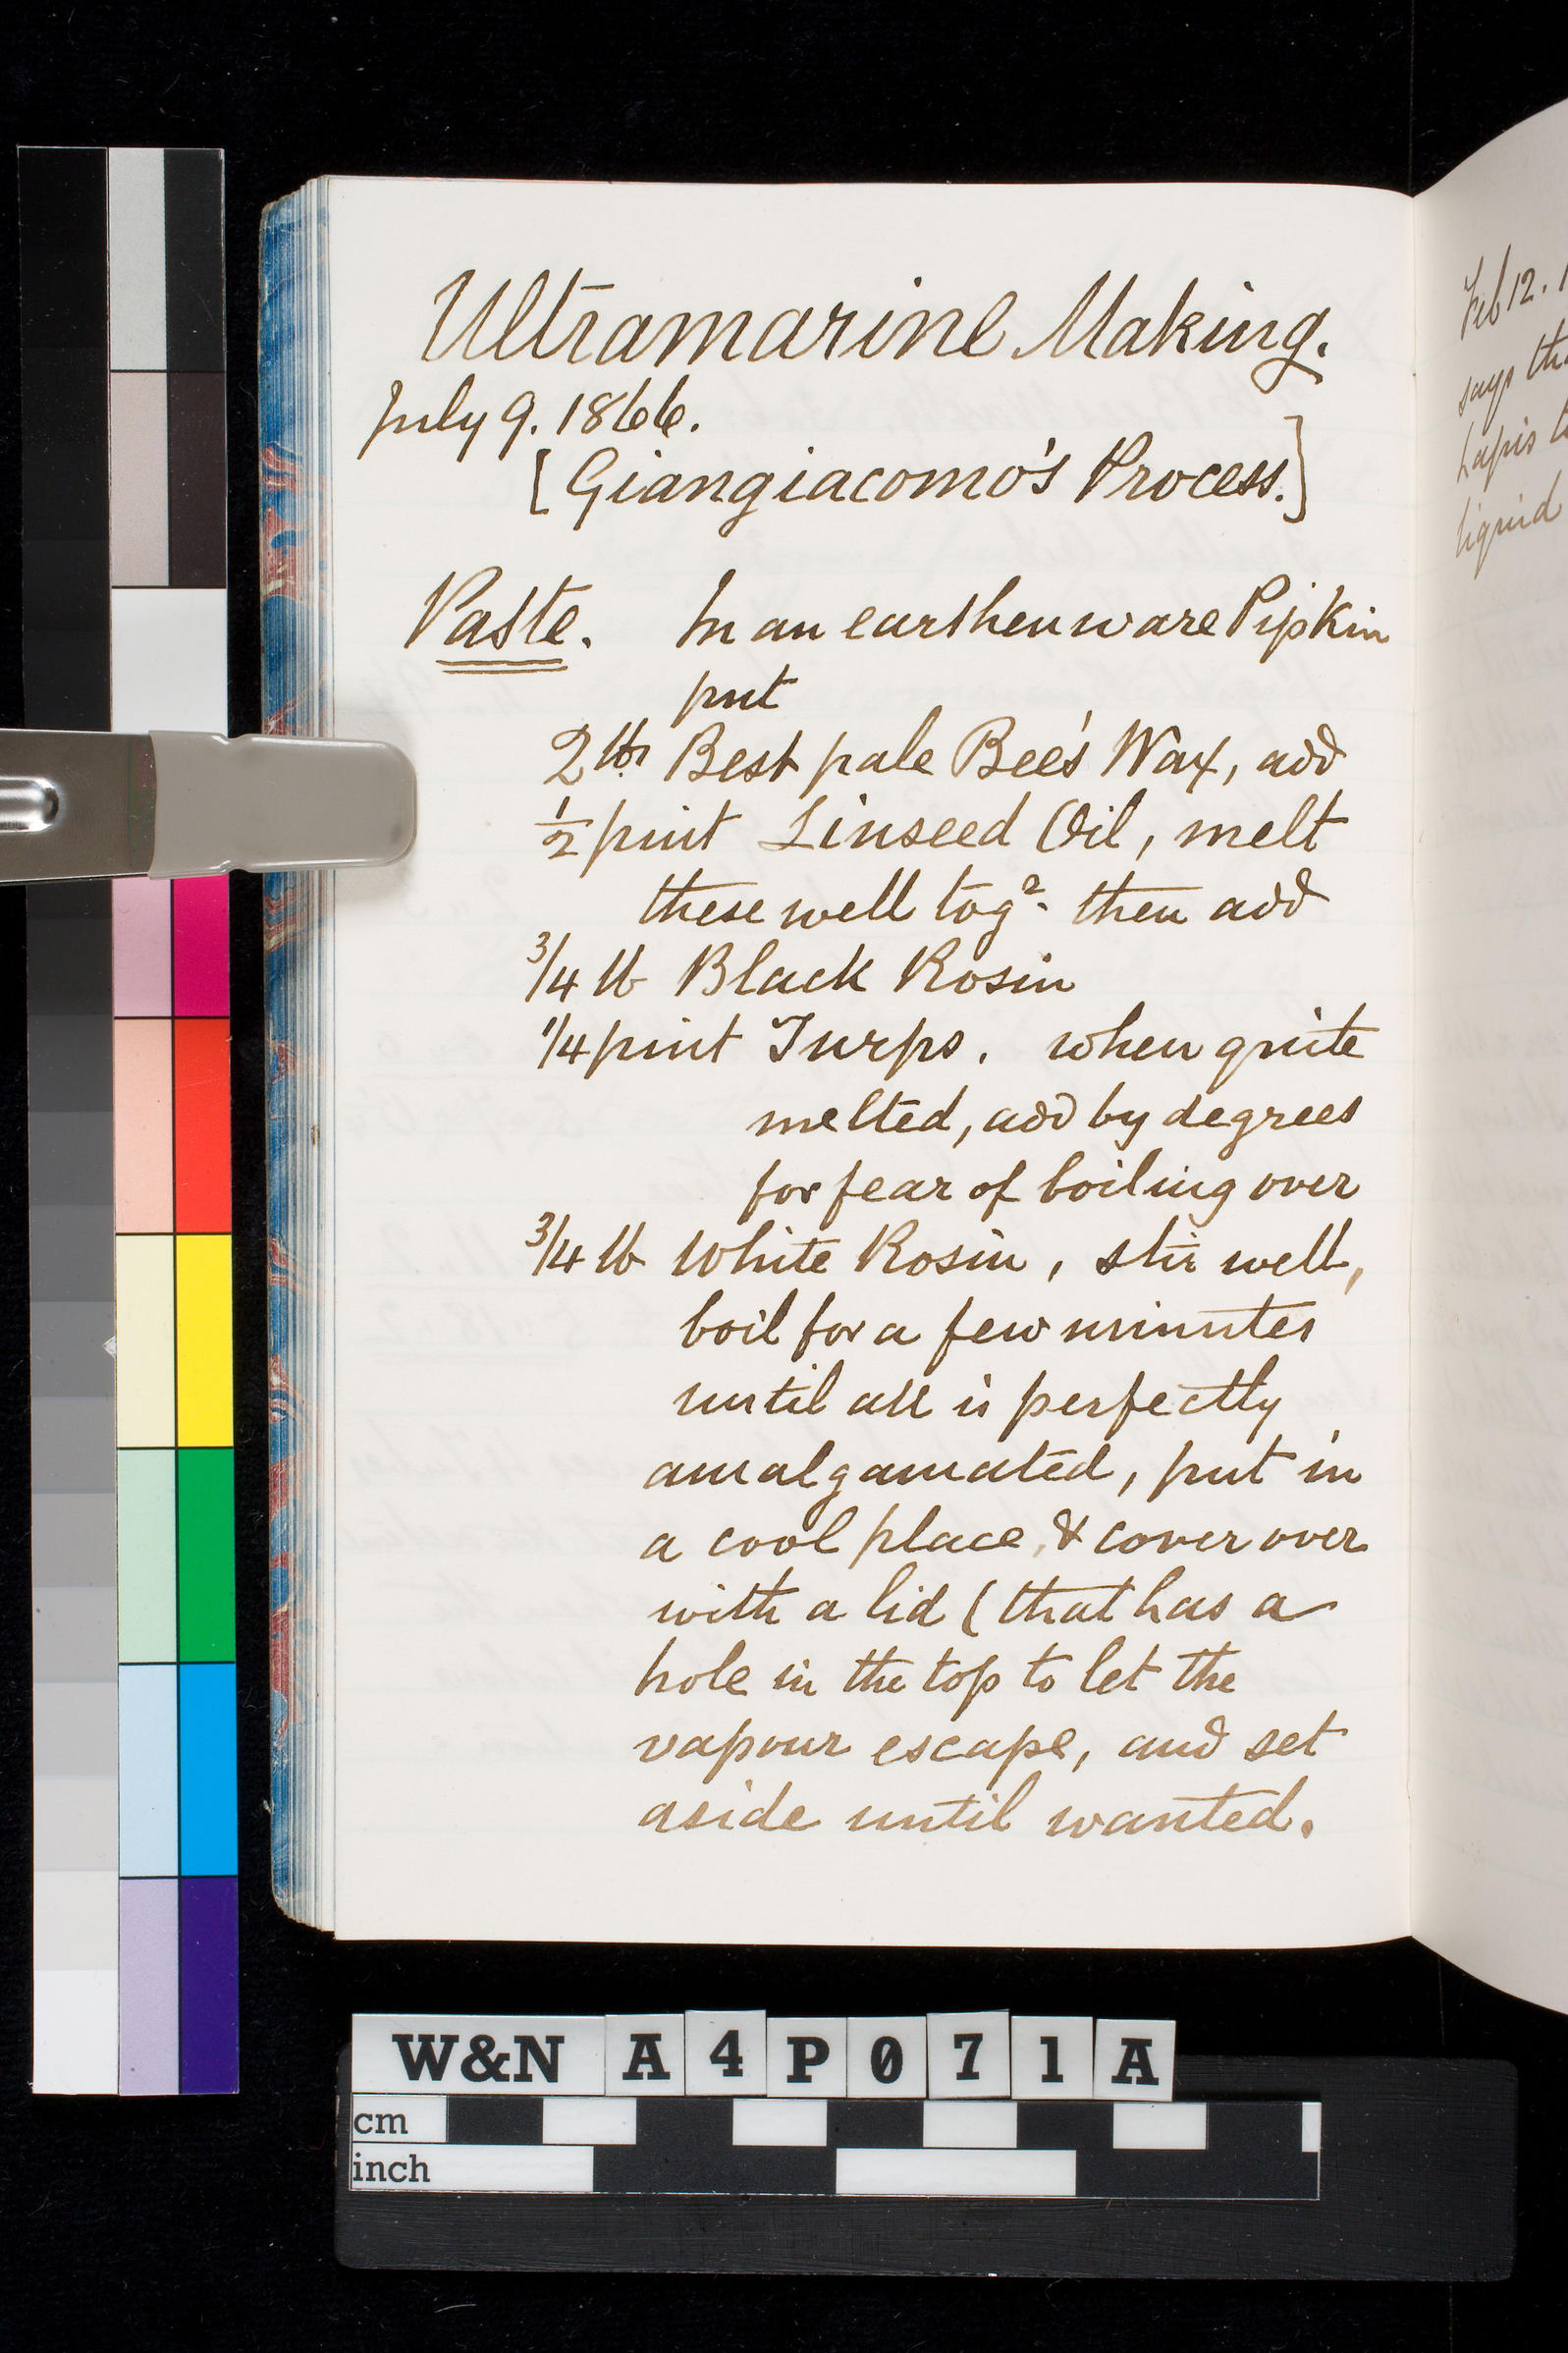 Ultramarine Making.
July 9. 1866.
[Giangiacomo's Process.]
Paste. In an earthenware Pipkin
put
2 lbs Best pale Bee's Wax, add
1/2 pint Linseed Oil, melt
these well togr. then add
3/4 lb Black Rosin
1/4 pint Turps. when quite
melted, add by degrees
for fear of boiling over
3/4 lb White Rosin, stir well,
boil for a few minutes
until all is perfectly
amalgamated, put in
a cool place, & cover over
with a lid (that has a
hole in the top to let the
vapour escape, and set
aside until wanted.
Feb 12. 1
says th
Lapis t
liquid
W&N A4P071A
cm
inch